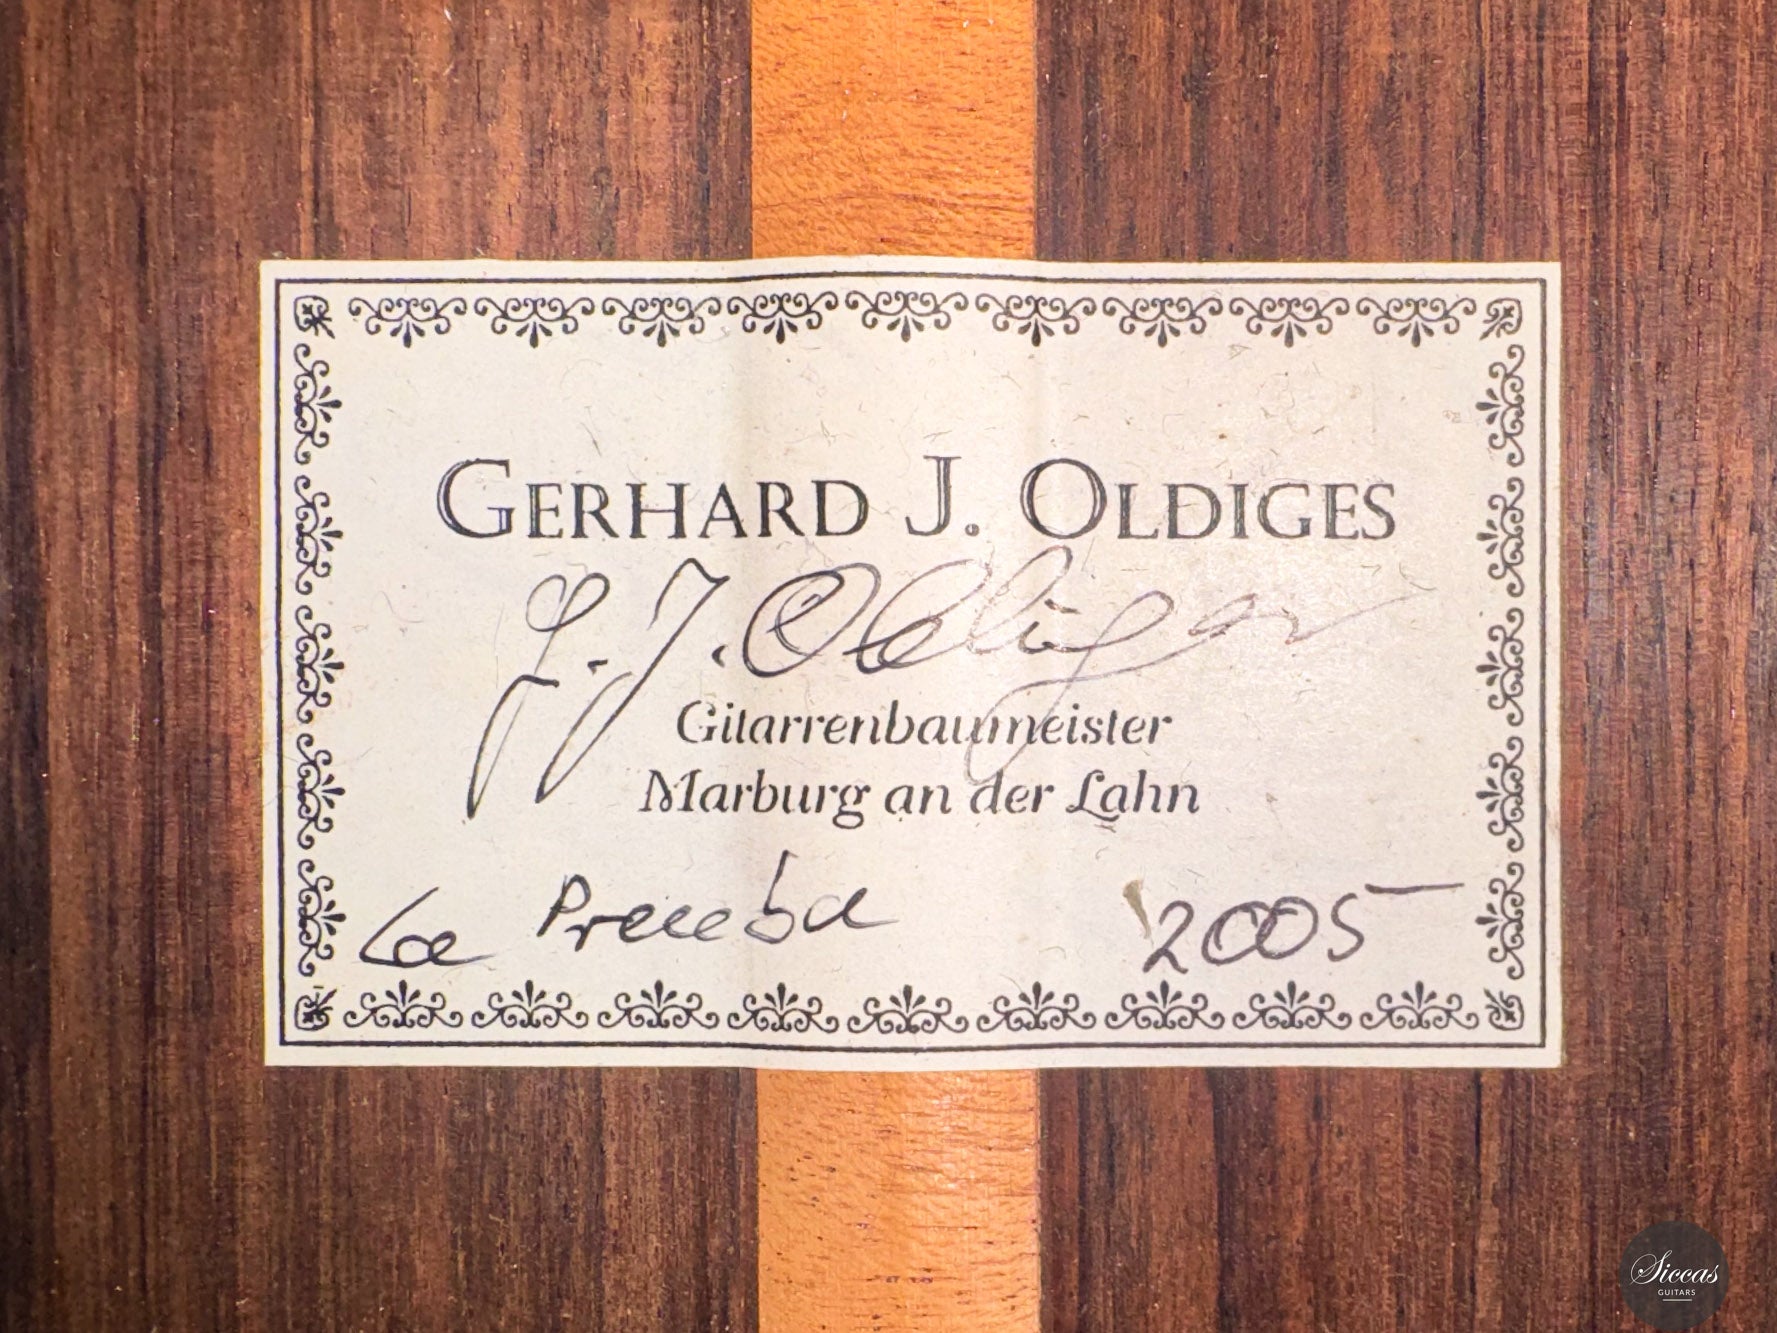 GERHARD J. OLDIGES
G. J. Oldiges
Gitarrenbaumeister
Marburg an der Lahn
La Prueba 2005
Siccas
GUITARS